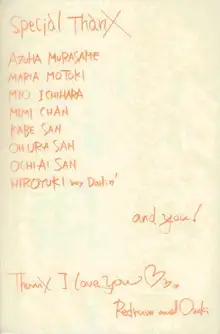 Special ThanX
AZUHA MURASAME
MARIA MOTOKI
MIO ICHIHARA
MIMI CHAN
KABE SAN
OHURA SAN
OCHIAI SAN
HIROYUKI my Darlin'
and you!
ThanX I love you
Redrum and